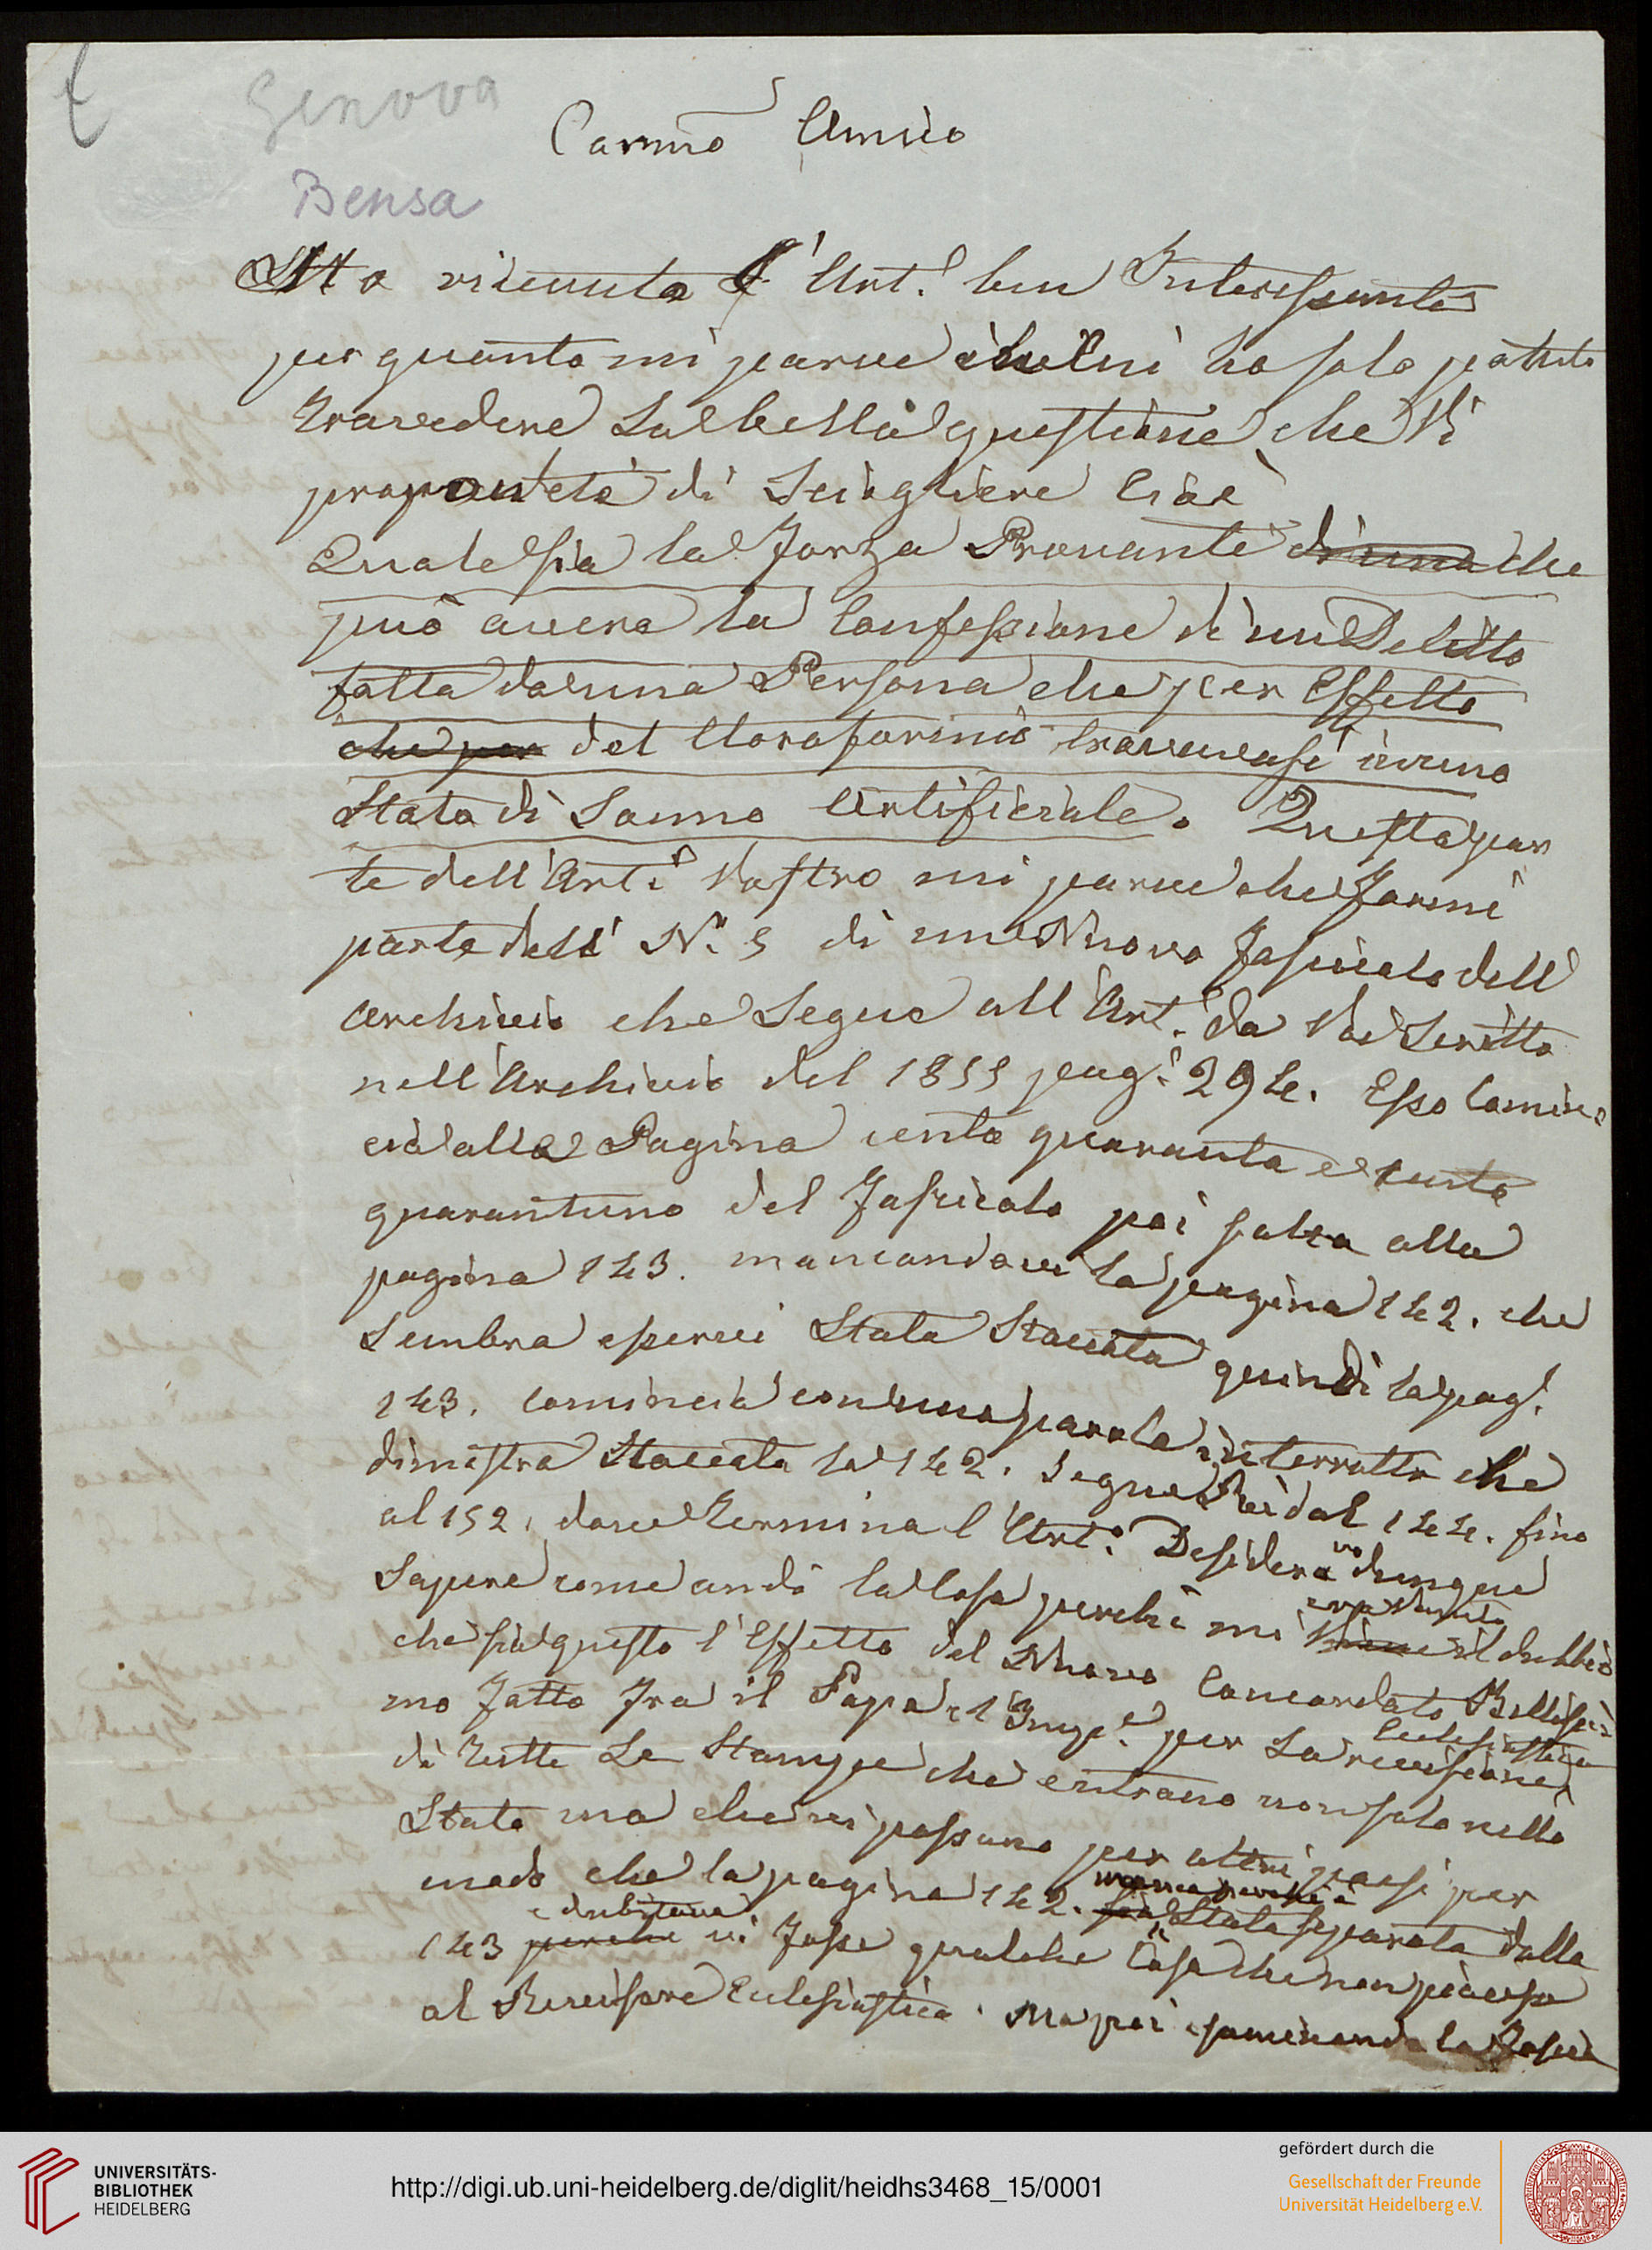 Genova
Carmo Amico
Bensa
Ho ricevuto l'Art.º ben Interessante
per quanto mi parve che lui ho solo potuto
travedere la bella questione che Vi
proponete di Sciogliere Cioè
Quale sia la Forza Provante di una che
può avere la Confessione di un Delitto
fatta da una Persona che per Effetto
che per del Cloroformio trovavasi in uno
Stato di Sonno Artificiale. Questa par
te dell'Art.º Vostro mi parve che formi
parte dell' N.º 5 di un Nuovo Fascicolo dell'
Archivio che Segue all'Art.º da Voi Scritto
nell'Archivio del 1855 pag.ª 294. Esso Comin
cia alla Pagina cento quaranta e cento
quarantuno del Fascicolo poi salta alla
pagina 143. mancandovi la pagina 142. che
Sembra esservi Stata Staccata quindi la pag.ª
143. comincia con una parola interrotta che
dimostra Staccata la 142. Segue poi dal 144. fino
al 152. dove termina l'Art.º Desideravo dunque
Sapere come andò la Cosa perchè mi era venuto
viene il dubbio
che sia questo l'Effetto del Nuovo Concordato Bellissi
mo fatto fra il Papa e l'Imp.e per La revisione Eclesiastica
di tutte Le Stampe che entrano non solo nello
Stato ma che vi passano per altri paesi per
modo che la pagina 142. sia Stata Separata dalla
e dubitavo
143 perchè vi fosse qualche Cosa che non piacesse
al Revisore Eclesiastico. Ma poi esaminando la
UNIVERSITÄTS-
BIBLIOTHEK
HEIDELBERG
http://digi.ub.uni-heidelberg.de/diglit/heidhs3468_15/0001
gefördert durch die
Gesellschaft der Freunde
Universität Heidelberg e.V.